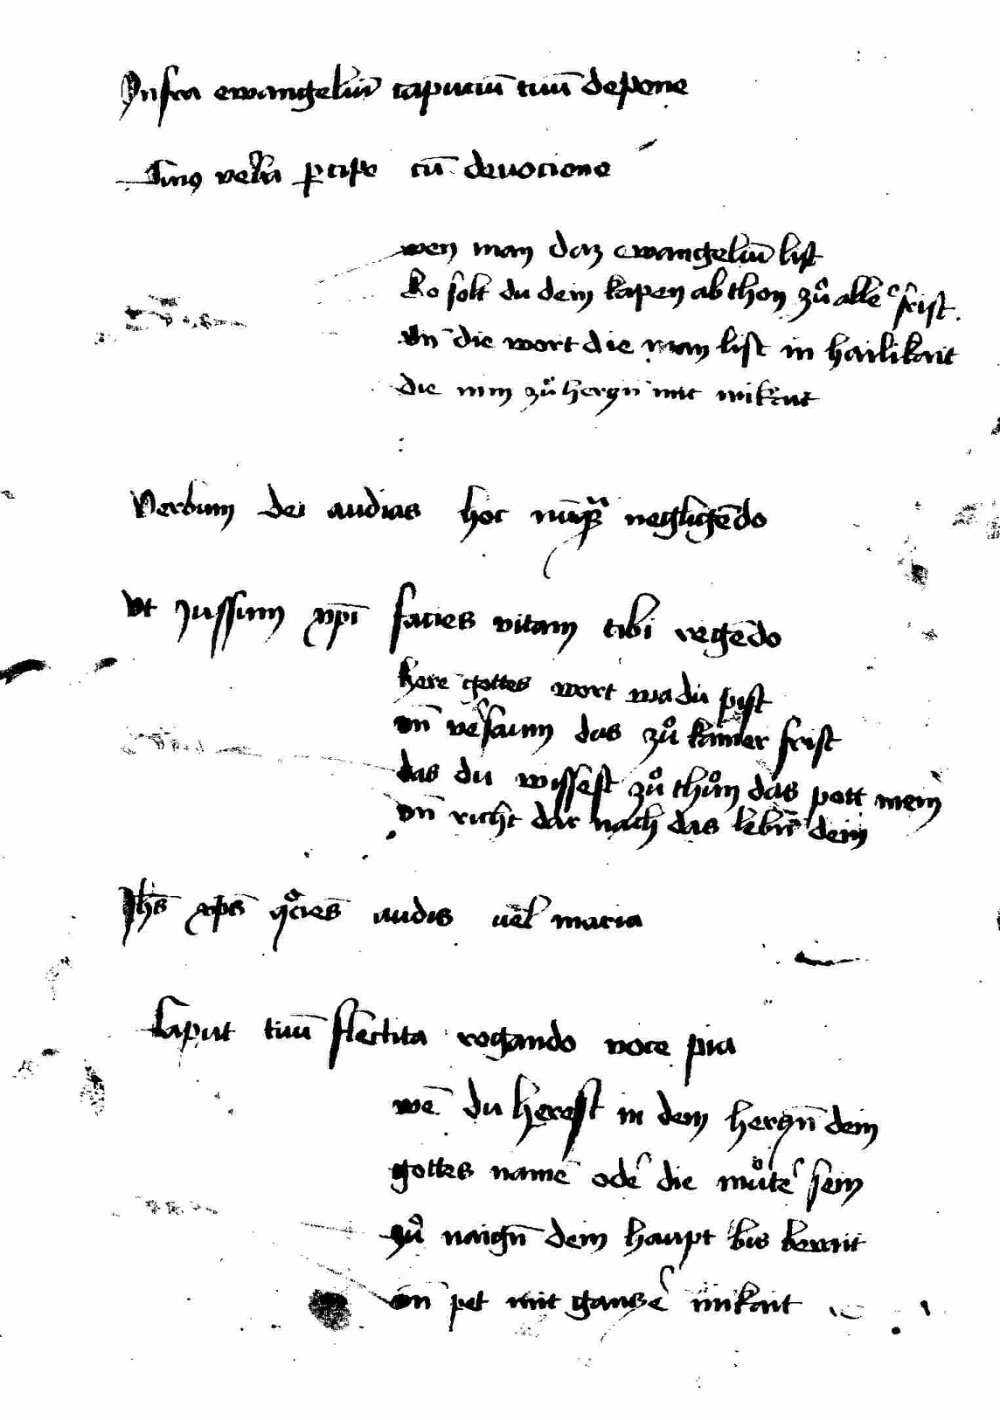 Infra ewangeliū capuciū tuū depone
Huiꝰ verba ꝑcipe cū deuocione
wen man daz ewangeliū list
So solt du dein kapen ab thon zuͦ aller frist
vn̄ die wort die man list in hailikait
die nim zuͦ hergn̄ mit inikait
Verbum dei audias hoc nūqᷓ negligēdo
Vt Jussum xp̄i facies vitam tibi regēdo
here gottes wort wa du pist
vn̄ versaum das zuͦ kainer frist
das du wissest zuͦ thuͦn das pott mein
vn̄ richt dar nach das lebn̄ dein
Jhs̄ xp̄s qͦcies audis vel maria
Caput tuū flectita rogando voce pia
wē du herest in dem hergn̄ dein
gottes namē oder die muͦter sein
zuͦ naign̄ dein haupt bis berait
vn̄ pet mit ganzer inikait